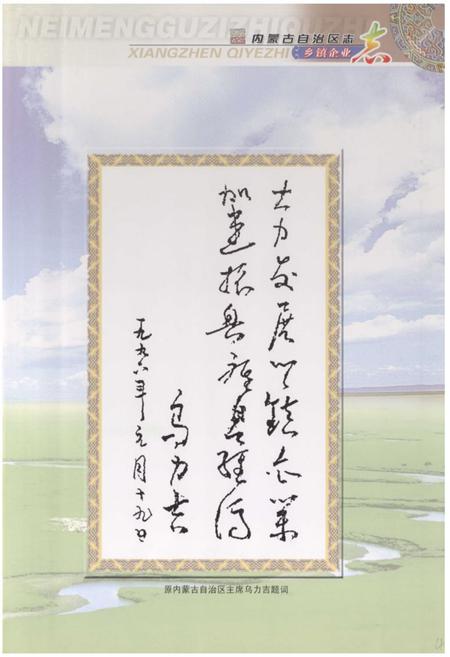 NEIMENGGUZIZHIQUZHI
内蒙古自治区志
XIANGZHEN QIYEZHI
乡镇企业
志
大力发展乡镇企业
加速振兴农县经济
乌力吉
一九九六年元月十九日
原内蒙古自治区主席乌力吉题词